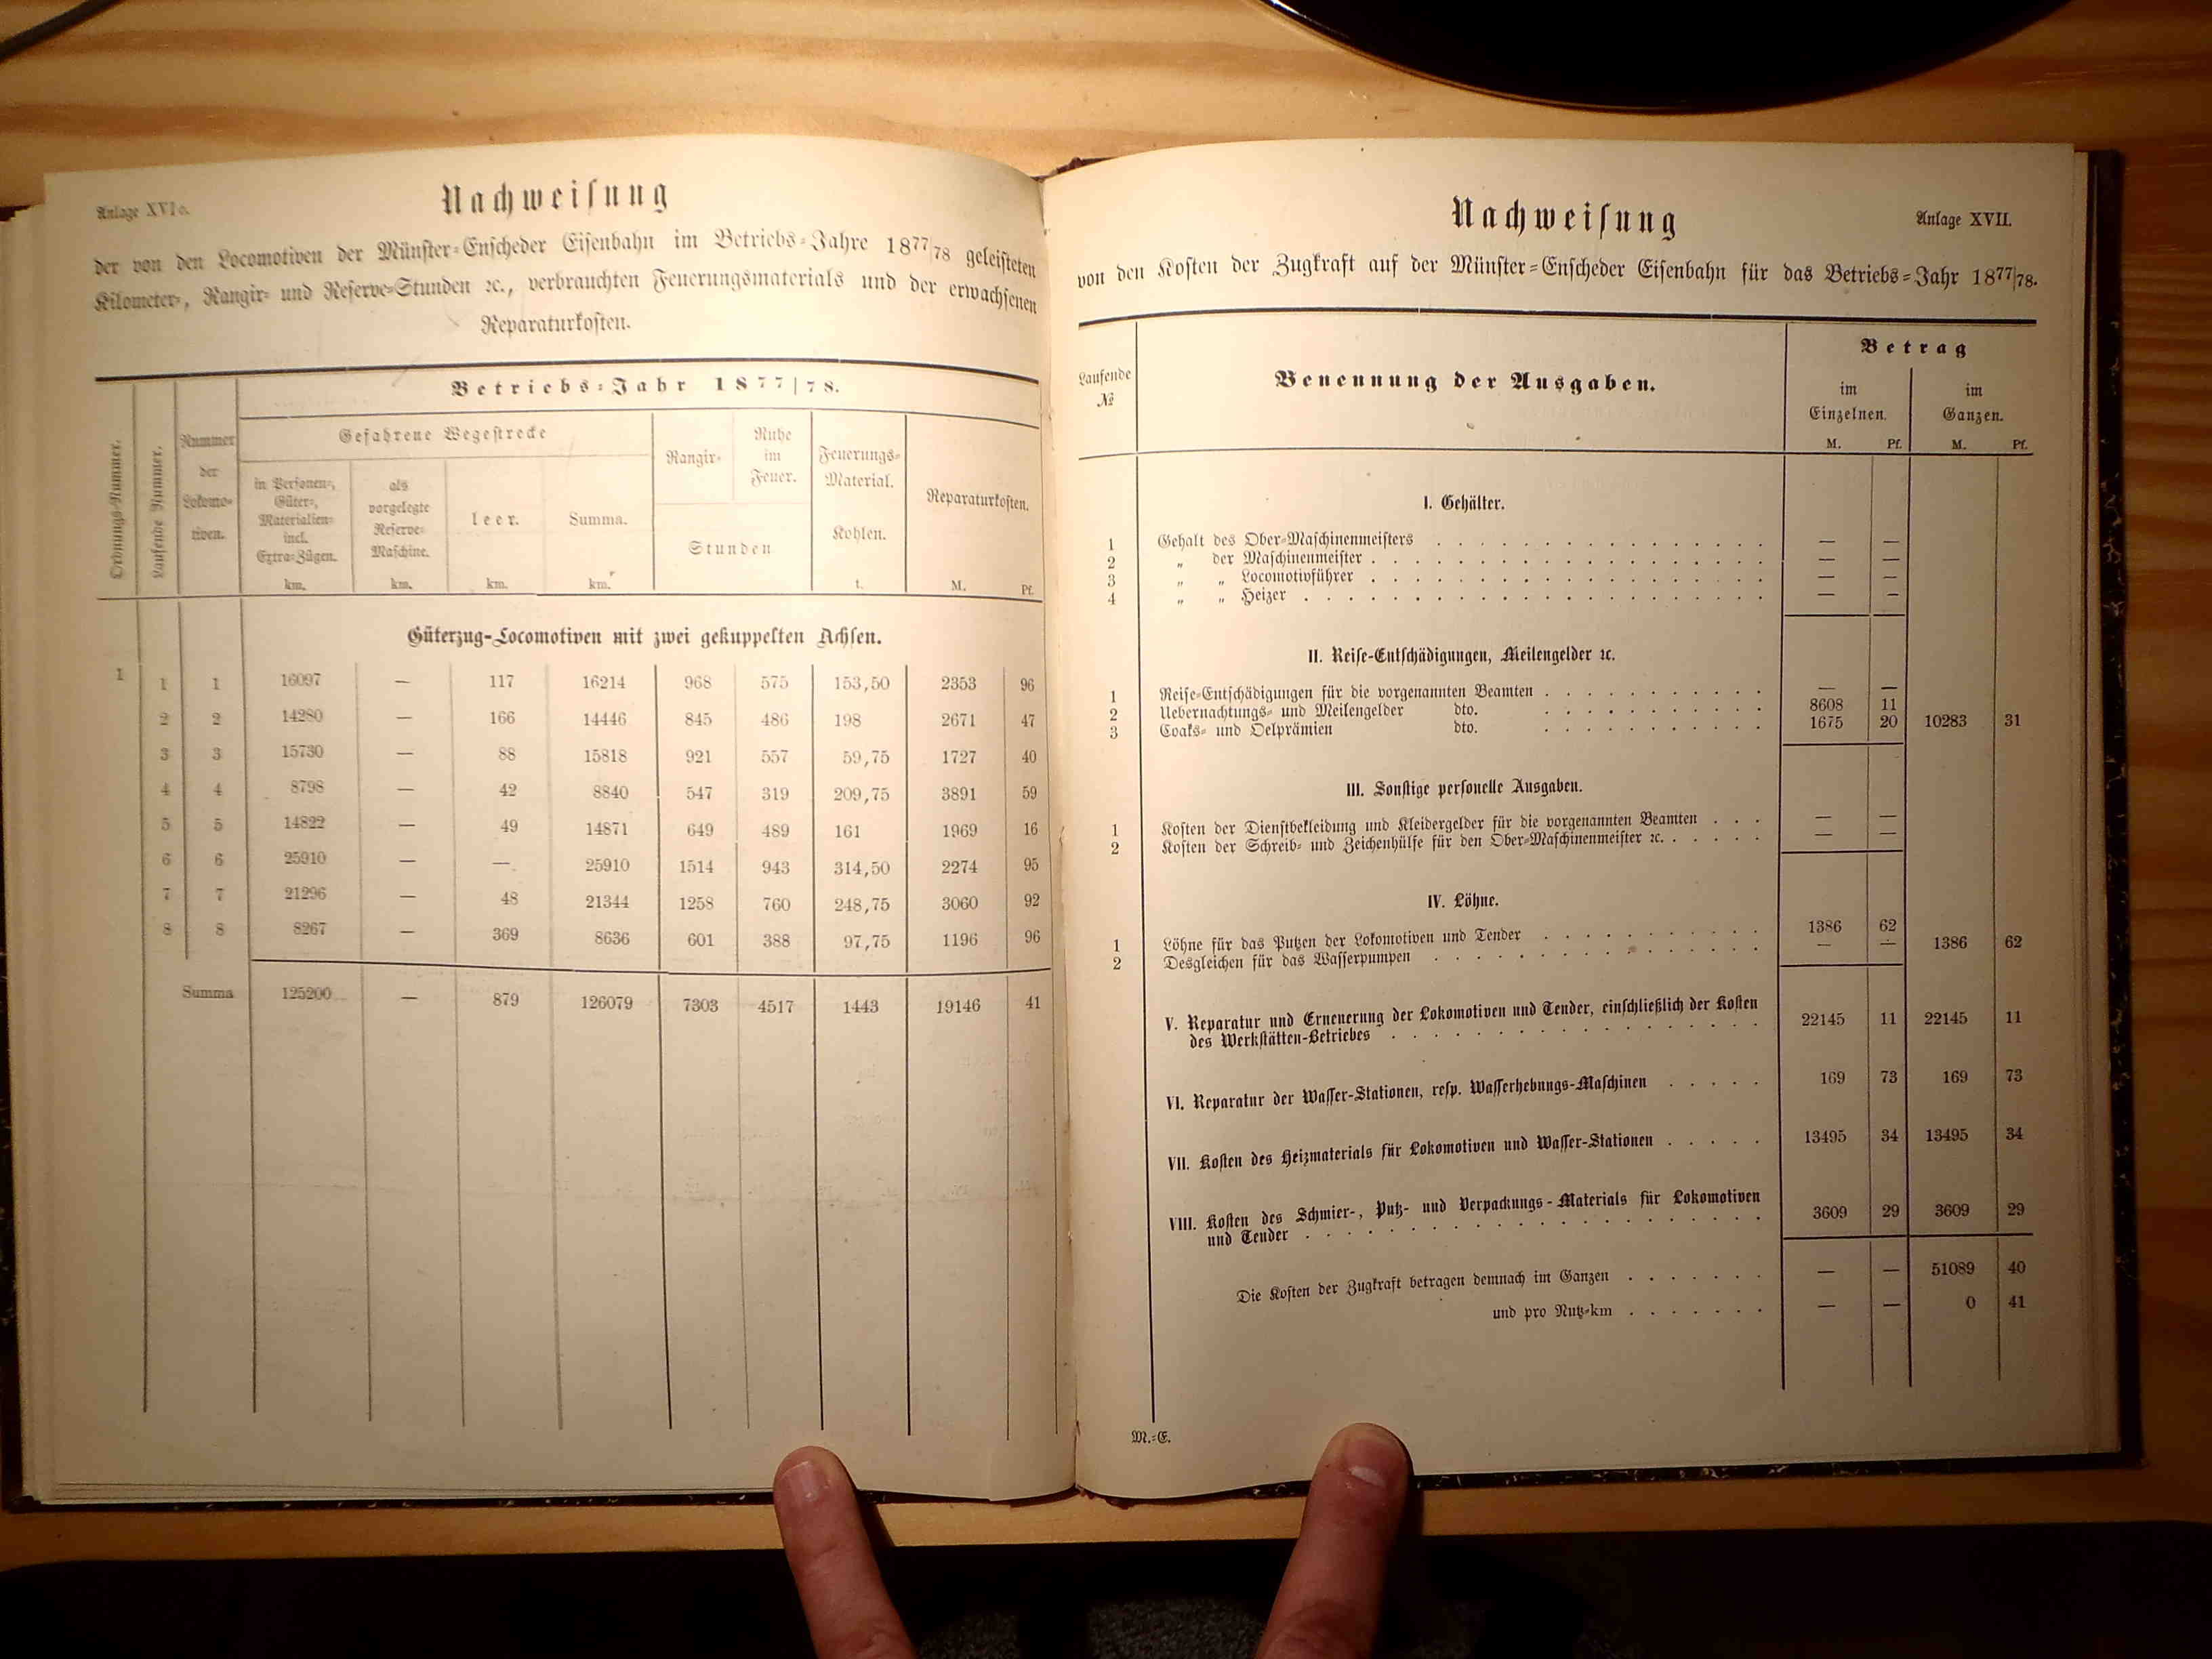 Anlage XVIc.
Nachweisung
der von den Locomotiven der Münster-Enscheder Eisenbahn im Betriebs-Jahre 1877/78 geleisteten
Kilometer-, Rangir- und Reserve-Stunden ꝛc., verbrauchten Feuerungsmaterials und der erwachsenen
Reparaturkosten.
Ordnungs-Nummer.
Laufende Nummer.
Nummer
der
Lokomo-
tiven.
Betriebs-Jahr 1877/78.
Gefahrene Wegestrecke
in Personen-,
Güter-,
Materialien-
incl.
Extra-Zügen.
km.
als
vorgelegte
Reserve-
Maschine.
km.
leer.
km.
Summa.
km.
Rangir-
Ruhe
im
Feuer.
Stunden
Feuerungs-
Material.
Kohlen.
t.
Reparaturkosten.
M. Pf.
Güterzug-Locomotiven mit zwei gekuppelten Achsen.
1 1 1 16097 — 117 16214 968 575 153,50 2353 96
2 2 14280 — 166 14446 845 486 198 2671 47
3 3 15730 — 88 15818 921 557 59,75 1727 40
4 4 8798 — 42 8840 547 319 209,75 3891 59
5 5 14822 — 49 14871 649 489 161 1969 16
6 6 25910 — — 25910 1514 943 314,50 2274 95
7 7 21296 — 48 21344 1258 760 248,75 3060 92
8 8 8267 — 369 8636 601 388 97,75 1196 96
Summa 125200 — 879 126079 7303 4517 1443 19146 41
Nachweisung
Anlage XVII.
von den Kosten der Zugkraft auf der Münster-Enscheder Eisenbahn für das Betriebs-Jahr 1877/78.
Laufende
№
Benennung der Ausgaben.
Betrag
im
Einzelnen.
M. Pf.
im
Ganzen.
M. Pf.
I. Gehälter.
1 Gehalt des Ober-Maschinenmeisters . . . . . . . . . — —
2 „ der Maschinenmeister . . . . . . . . . — —
3 „ „ Locomotivführer . . . . . . . . . — —
4 „ „ Heizer . . . . . . . . . — —
II. Reise-Entschädigungen, Meilengelder ꝛc.
1 Reise-Entschädigungen für die vorgenannten Beamten . . . . . . . . . — —
2 Uebernachtungs- und Meilengelder dto. . . . . . . . . . 8608 11
3 Coaks- und Oelprämien dto. . . . . . . . . . 1675 20 10283 31
III. Sonstige personelle Ausgaben.
1 Kosten der Dienstbekleidung und Kleidergelder für die vorgenannten Beamten . . . — —
2 Kosten der Schreib- und Zeichenhülfe für den Ober-Maschinenmeister ꝛc. . . . . . — —
IV. Löhne.
1 Löhne für das Putzen der Lokomotiven und Tender . . . . . . . . . 1386 62
2 Desgleichen für das Wasserpumpen . . . . . . . . . — — 1386 62
V. Reparatur und Erneuerung der Lokomotiven und Tender, einschließlich der Kosten
des Werkstätten-Betriebes . . . . . . . . . 22145 11 22145 11
VI. Reparatur der Wasser-Stationen, resp. Wasserhebungs-Maschinen . . . . . 169 73 169 73
VII. Kosten des Heizmaterials für Lokomotiven und Wasser-Stationen . . . . . 13495 34 13495 34
VIII. Kosten des Schmier-, Putz- und Verpackungs-Materials für Lokomotiven
und Tender . . . . . . . . . 3609 29 3609 29
Die Kosten der Zugkraft betragen demnach im Ganzen . . . . . . . — — 51089 40
und pro Nutz-km . . . . . . . — — 0 41
M.-E.